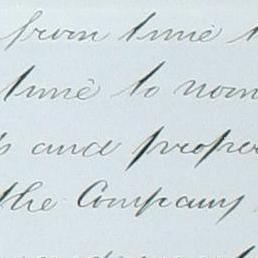 from time
time to nom
and proper
the Company